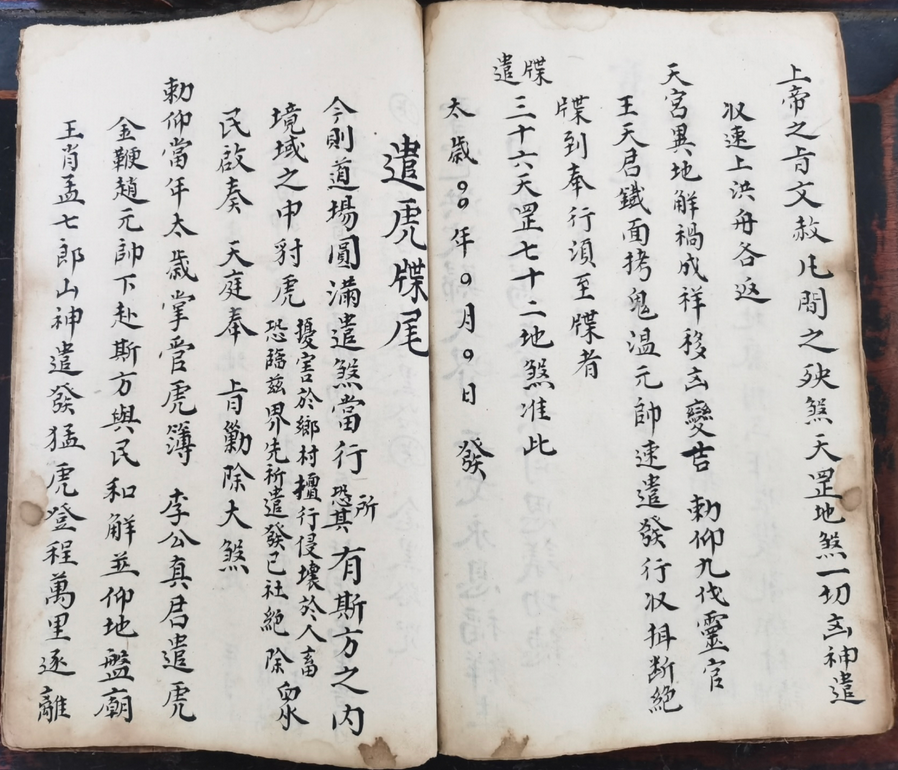 上帝之旨文赦凡間之殃煞天罡地煞一切凶神遣
収速上洪舟各返
天宮異地解禍成祥移凶變吉　勅仰九伐靈官
王天君鐵面拷鬼溫元帥速遣發行収捐斷絕
牒到奉行須至牒者
遣牒
三十六天罡七十二地煞准此
太歲〇〇年〇月〇日　發
遣虎牒尾
今則道場圓滿遣煞當行　所恐其有斯方之内
境域之中豺虎擾害於鄉村擅行侵壞於人畜
恐臨茲界先祈遣發已社絕除　衆
民啟奏　天庭奉　旨勦除大煞
勅仰當年太歲掌管虎簿　李公真君遣虎
金鞭趙元帥下赴斯方與民和解並仰地盤廟
王肖孟七郎山神遣發猛虎登程萬里逐離